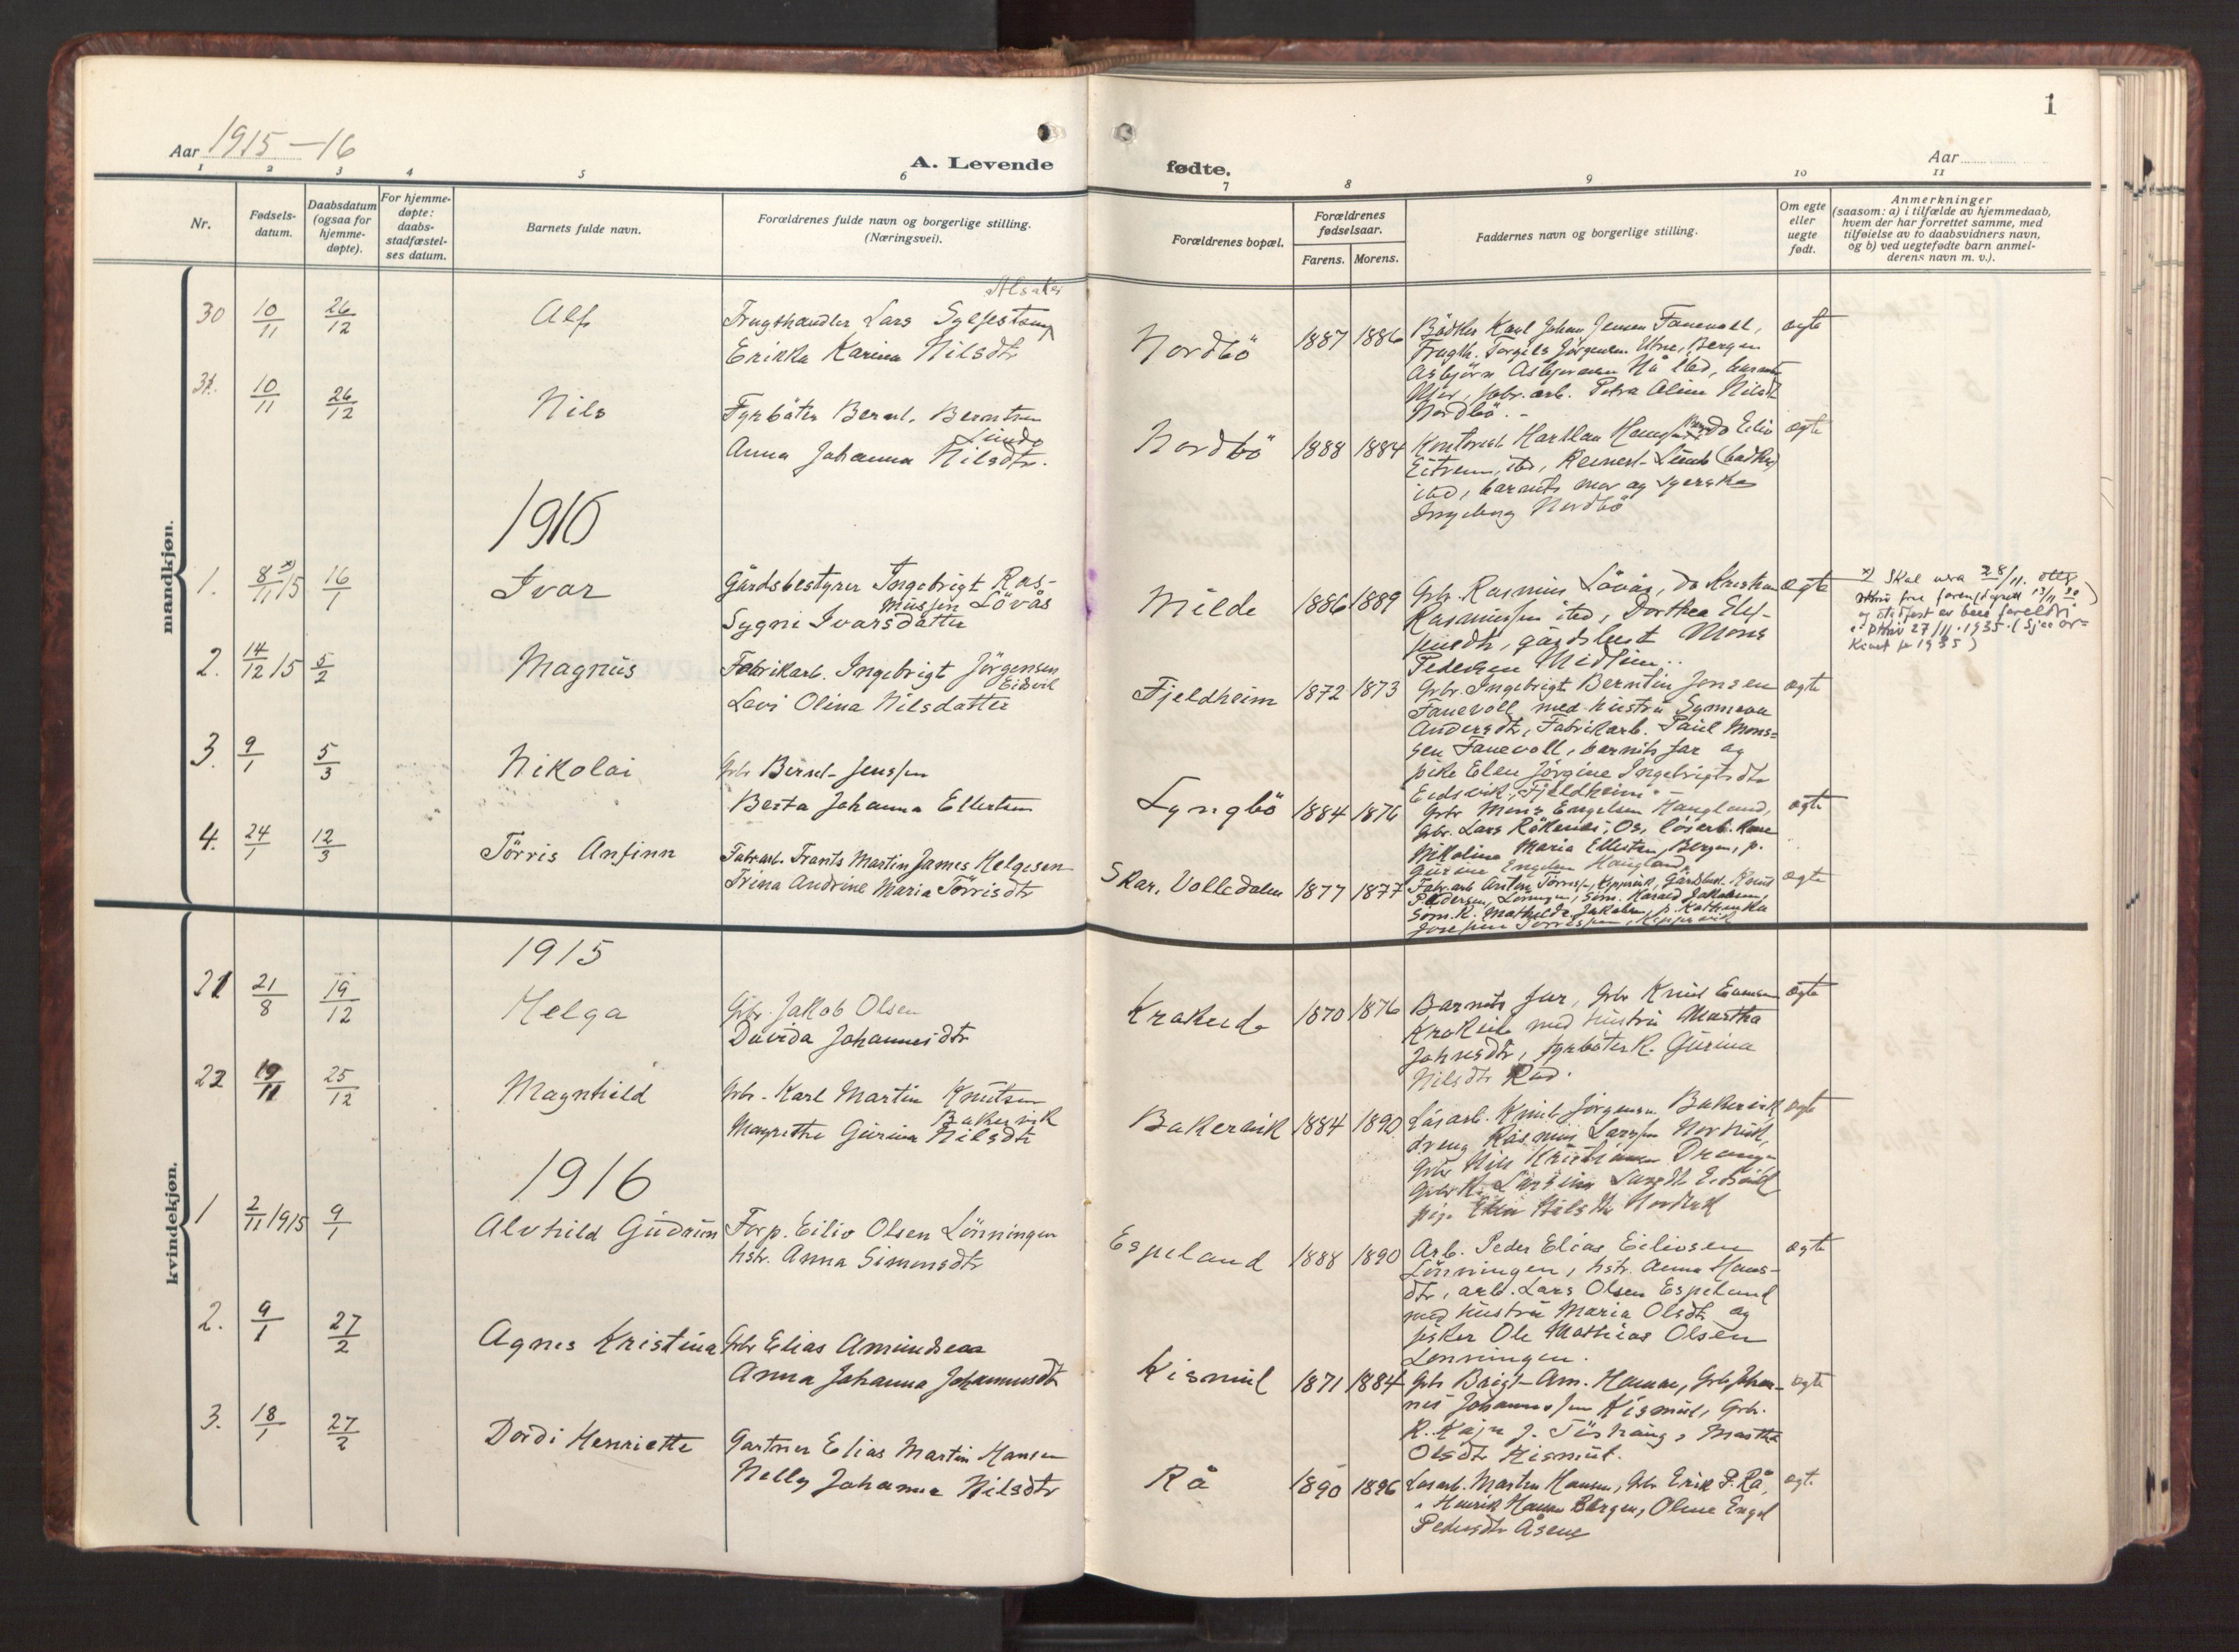 1
Aar 1915-16
A. Levende
fødte.
Aar
1 2 3 4 5 6 7 8 9 10 11
Nr.
Fødsels-
datum.
Daabsdatum
(ogsaa for
hjemme-
døpte).
For hjemme-
døpte:
daabs-
stadfæstel-
ses datum.
Barnets fulde navn.
Forældrenes fulde navn og borgerlige stilling.
(Næringsvei).
Forældrenes bopæl.
Forældrenes
fødselsaar.
Farens. Morens.
Faddernes navn og borgerlige stilling.
Om egte
eller
uegte
født.
Anmerkninger
(saasom: a) i tilfælde av hjemmedaab,
hvem der har forrettet samme, med
tilføielse av to daabsvidners navn,
og b) ved uegtefødte barn anmel-
derens navn m. v.).
mandkjøn.
30 10/11 26/12 Alf
Alsaker
Frugthandler Lars Sylfestsen
Erikka Karina Nilsdtr
Nordbö 1887 1886
Bödker Karl Johan Jensen Fanevoll,
Frugth. Torgils Jörgensen Utne, Bergen
Asbjörn
fabr. arb. Petra Oline Nilsdtr
Nordbö.
egte
31. 10/11 26/12 Nils
Fyrböter Bernt. Berntsen
Lunde
Anna Johanna Nilsdtr.
Nordbö 1888 1884
Kontorist
Eitrem, ibd,
ibd, barnets mor og syerske
Ingeborg Nordbö
egte
1916
1. 8/11 x) 15 16/1 Ivar
Gårdsbestyrer Ingebrigt Ras-
mussen Lövås
Sygni Ivarsdatter
Milde 1886 1889
Grb. Rasmus Lövås, do Kristian
Rasmussen ibd, Dorthea Elef-
sensdtr, gårdsbest Mons
Pedersen Midtun..
egte
x) Skal vera 28/11. etter
skriv frå
og stadfest av
i skriv 27/11.1935. (Sjå ar-
kivet for 1935)
2. 14/12 15 5/2 Magnus
Fabrikarb. Ingebrigt Jörgensen
Eidsvik
Lovi Olina Nilsdatter
Fjeldheim 1872 1873
Grbr. Ingebrigt Berntin Jensen
Fanevoll med hustru Synneva
Andersdtr, Fabrikarb. Paul Mons=
sen Fanevoll, barnets far og
pike Elen Jörgine Ingebrigtsdtr
Eidsvik, Fjeldheim.
egte
3. 9/1 5/3 Nikolai
Grb Bernt Jenssen
Berta Johanna Ellertsen
Lyngbö 1884 1876
Grbr Mons Engelsen Haugland,
Grbr. Lars Rökenes, Os, lösarb. kone
Nikolina Maria Ellertsen, Bergen, p.
Gurine Engelsen Haugland.
egte
4. 24/1 12/3 Törris Anfinn
Fabrarb. Frants Martin James Helgesen
Trina Andrine Maria Törrisdtr
Skar, Volledalen 1877 1877
Fabr arb Anton Törressen, Gårdbest. Knut
Pedersen, Lönningen, Söm. Harald Jakobsen,
Söm. K. Mathilde Jakobsen, p. Kathinka
Josefine Törressen,
egte
kvindekjøn.
1915
21 21/8 19/12 Helga
Grb. Jakob Olsen
Davida Johannesdtr
Krokeide 1870 1876
Barnets far, Grb Knut
Krokeide med hustru Martha
Johnsdtr, fyrböter k. Gurina
Nilsdtr Röd.
egte
22 19/11 25/12 Magnhild
Grb. Karl Martin Knutsen
Bakervik
Margrethe Gurina Nilsdtr
Bakervik 1884 1890
Lösarb. Knut Jörgensen Bakervik
dreng Rasmus Larssen Nordvik,
Grbr Nils Kristiansen Drange
Grbr K. Larsine Larsdtr Eidsvik
pige Nilsdtr Nordvik
egte
1916
1 2/11 1915 9/1 Alvhild Gudrun
Forp. Eiliv Olsen Lönningen
hstr. Anna Simonsdtr
Espeland 1888 1890
Arb. Peder Elias Eilivsen
Lönningen, hstr. Anna Hans-
dtr, arb. Lars Olsen Espeland
med hustru Maria Olsdtr og
fisker Ole Mathias Olsen
Lönningen.
egte
2. 9/1 27/2 Agnes Kristina
Grbr Elias Amundsen
Anna Johanna Johannesdtr
Kismul 1871 1884
Grb Brigt Am. Hamre, Grb Johan-
nes Johannessen Kismul, Grb.
K. Kaja J. Tishaug, Martha
Olsdtr Kismul.
egte
3. 18/1 27/2 Dordi Henriette
Gartner Elias Martin Hansen
Nelly Johanna Nilsdtr
Rå 1890 1896
Lösarb. Martin Hansen, Grbr Erik P. Rå,
" Henrik Hansen Bergen, Oline Engel
Pedersdtr Åsene
egte